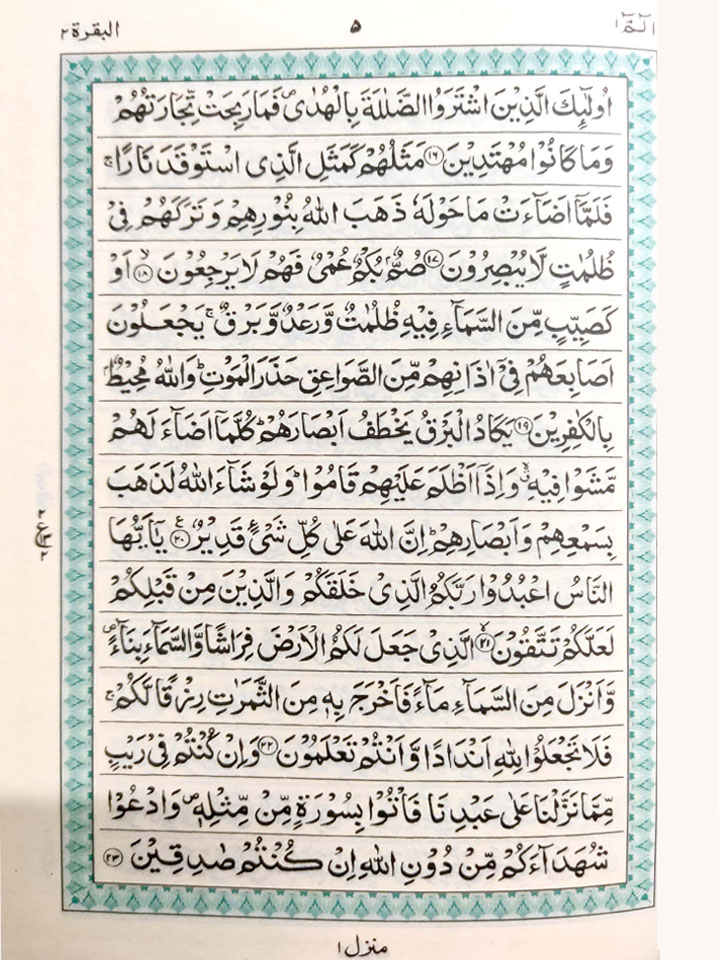 الٓمّٓ ۱ ۵ البقرة ۲
اُولٰٓئِكَ الَّذِيْنَ اشْتَرَوُا الضَّلٰلَةَ بِالْهُدٰى ۪ فَمَا رَبِحَتْ تِّجَارَتُهُمْ
وَمَا كَانُوْا مُهْتَدِيْنَ ۱۶ مَثَلُهُمْ كَمَثَلِ الَّذِى اسْتَوْقَدَ نَارًا ۚ
فَلَمَّآ اَضَآءَتْ مَا حَوْلَهٗ ذَهَبَ اللّٰهُ بِنُوْرِهِمْ وَتَرَكَهُمْ فِىْ
ظُلُمٰتٍ لَّا يُبْصِرُوْنَ ۱۷ صُمٌّۢ بُكْمٌ عُمْىٌ فَهُمْ لَا يَرْجِعُوْنَ ۙ ۱۸ اَوْ
كَصَيِّبٍ مِّنَ السَّمَآءِ فِيْهِ ظُلُمٰتٌ وَّرَعْدٌ وَّبَرْقٌ ۚ يَجْعَلُوْنَ
اَصَابِعَهُمْ فِىْٓ اٰذَانِهِمْ مِّنَ الصَّوَاعِقِ حَذَرَ الْمَوْتِ ؕ وَاللّٰهُ مُحِيْطٌۢ
بِالْكٰفِرِيْنَ ۱۹ يَكَادُ الْبَرْقُ يَخْطَفُ اَبْصَارَهُمْ ؕ كُلَّمَآ اَضَآءَ لَهُمْ
مَّشَوْا فِيْهِ ۙ وَاِذَآ اَظْلَمَ عَلَيْهِمْ قَامُوْا ؕ وَلَوْ شَآءَ اللّٰهُ لَذَهَبَ
بِسَمْعِهِمْ وَاَبْصَارِهِمْ ؕ اِنَّ اللّٰهَ عَلٰى كُلِّ شَىْءٍ قَدِيْرٌ ۲۰ يٰٓاَيُّهَا
النَّاسُ اعْبُدُوْا رَبَّكُمُ الَّذِىْ خَلَقَكُمْ وَالَّذِيْنَ مِنْ قَبْلِكُمْ
لَعَلَّكُمْ تَتَّقُوْنَ ۙ ۲۱ الَّذِىْ جَعَلَ لَكُمُ الْاَرْضَ فِرَاشًا وَّالسَّمَآءَ بِنَآءً ۪
وَّاَنْزَلَ مِنَ السَّمَآءِ مَآءً فَاَخْرَجَ بِهٖ مِنَ الثَّمَرٰتِ رِزْقًا لَّكُمْ ۚ
فَلَا تَجْعَلُوْا لِلّٰهِ اَنْدَادًا وَّاَنْتُمْ تَعْلَمُوْنَ ۲۲ وَاِنْ كُنْتُمْ فِىْ رَيْبٍ
مِّمَّا نَزَّلْنَا عَلٰى عَبْدِنَا فَاْتُوْا بِسُوْرَةٍ مِّنْ مِّثْلِهٖ ۪ وَادْعُوْا
شُهَدَآءَكُمْ مِّنْ دُوْنِ اللّٰهِ اِنْ كُنْتُمْ صٰدِقِيْنَ ۲۳
منزل ۱